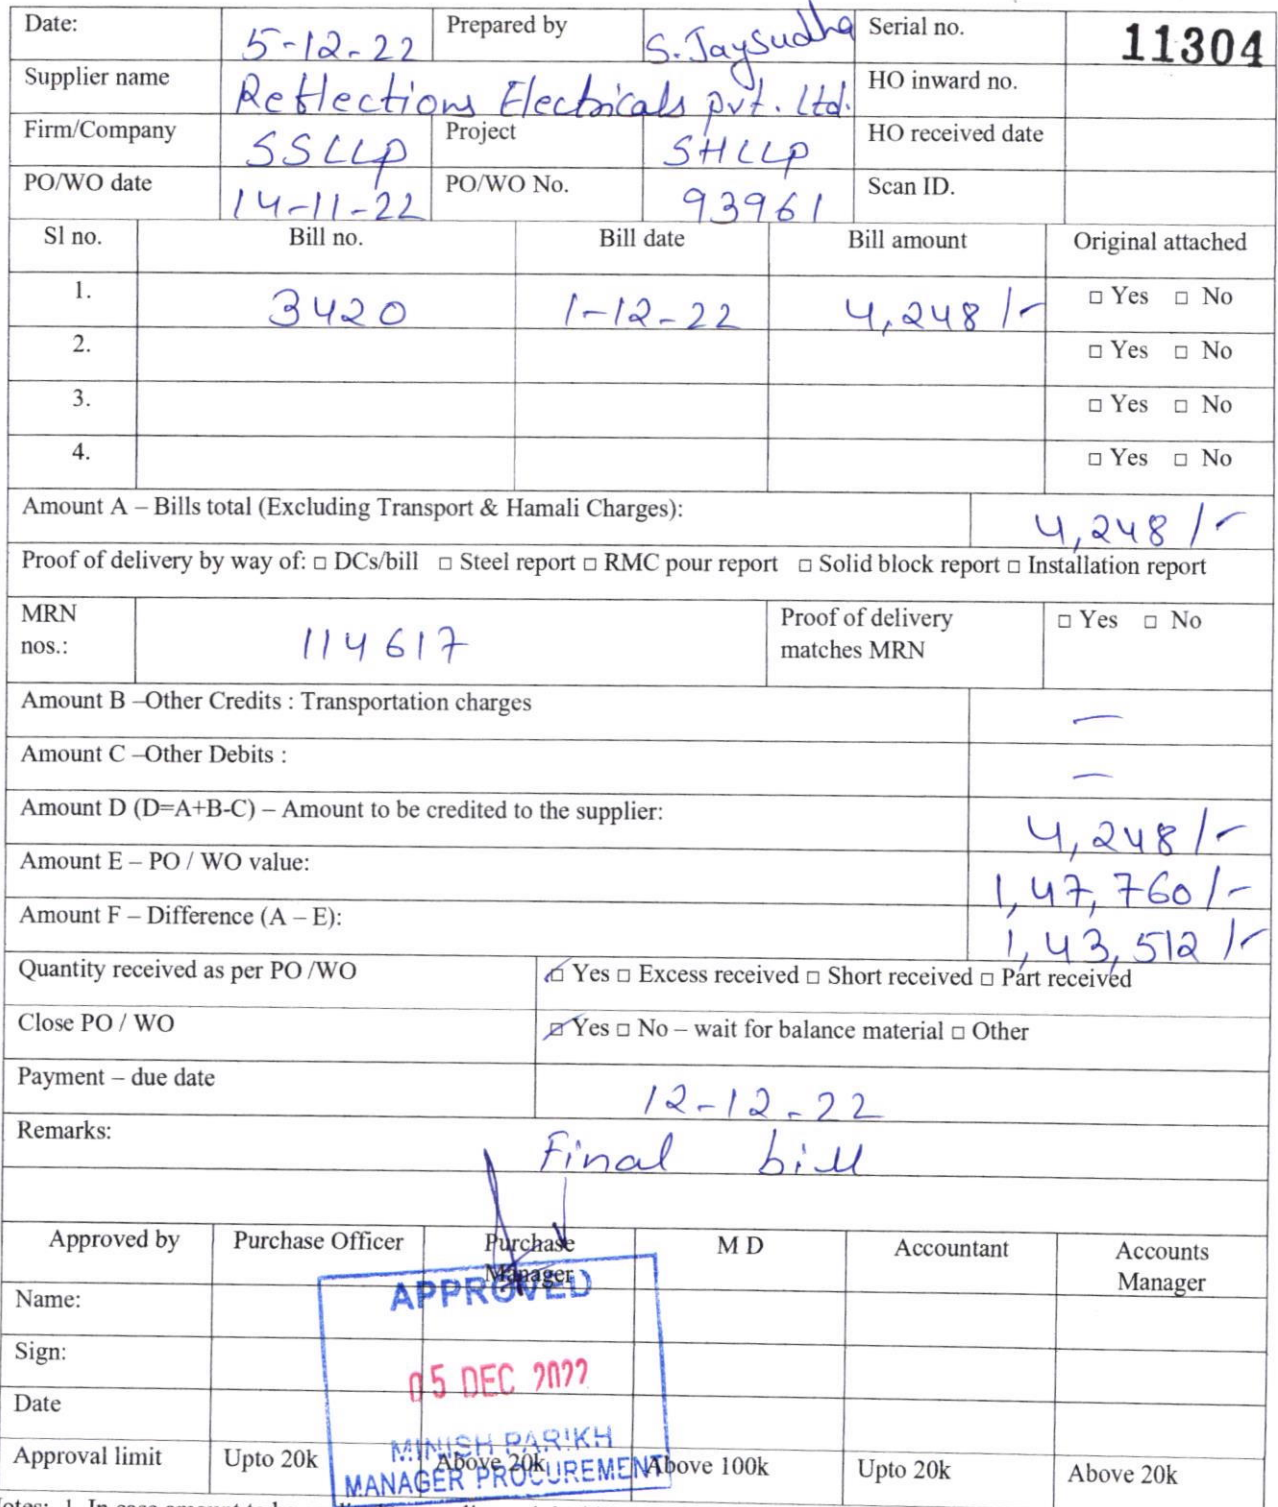 Date: 5-12-22 Prepared by S. Jaysudha Serial no. 11304
Supplier name Reflections Electricals pvt. Ltd. HO inward no.
Firm/Company SSLLP Project SHLLP HO received date
PO/WO date 14-11-22 PO/WO No. 93961 Scan ID.
Sl no. Bill no. Bill date Bill amount Original attached
1. 3420 1-12-22 4,248/- □ Yes □ No
2. □ Yes □ No
3. □ Yes □ No
4. □ Yes □ No
Amount A – Bills total (Excluding Transport & Hamali Charges): 4,248/-
Proof of delivery by way of: □ DCs/bill □ Steel report □ RMC pour report □ Solid block report □ Installation report
MRN nos.: 114617 Proof of delivery matches MRN □ Yes □ No
Amount B –Other Credits : Transportation charges —
Amount C –Other Debits : —
Amount D (D=A+B-C) – Amount to be credited to the supplier: 4,248/-
Amount E – PO / WO value: 1,47,760/-
Amount F – Difference (A – E): 1,43,512/-
Quantity received as per PO /WO ☑ Yes □ Excess received □ Short received □ Part received
Close PO / WO ☑ Yes □ No – wait for balance material □ Other
Payment – due date 12-12-22
Remarks: Final bill
Approved by Purchase Officer Purchase Manager M D Accountant Accounts Manager
APPROVED
Name:
Sign:
05 DEC 2022
Date
MINISH PARIKH
Approval limit Upto 20k Above 20k Above 100k Upto 20k Above 20k
MANAGER PROCUREMENT